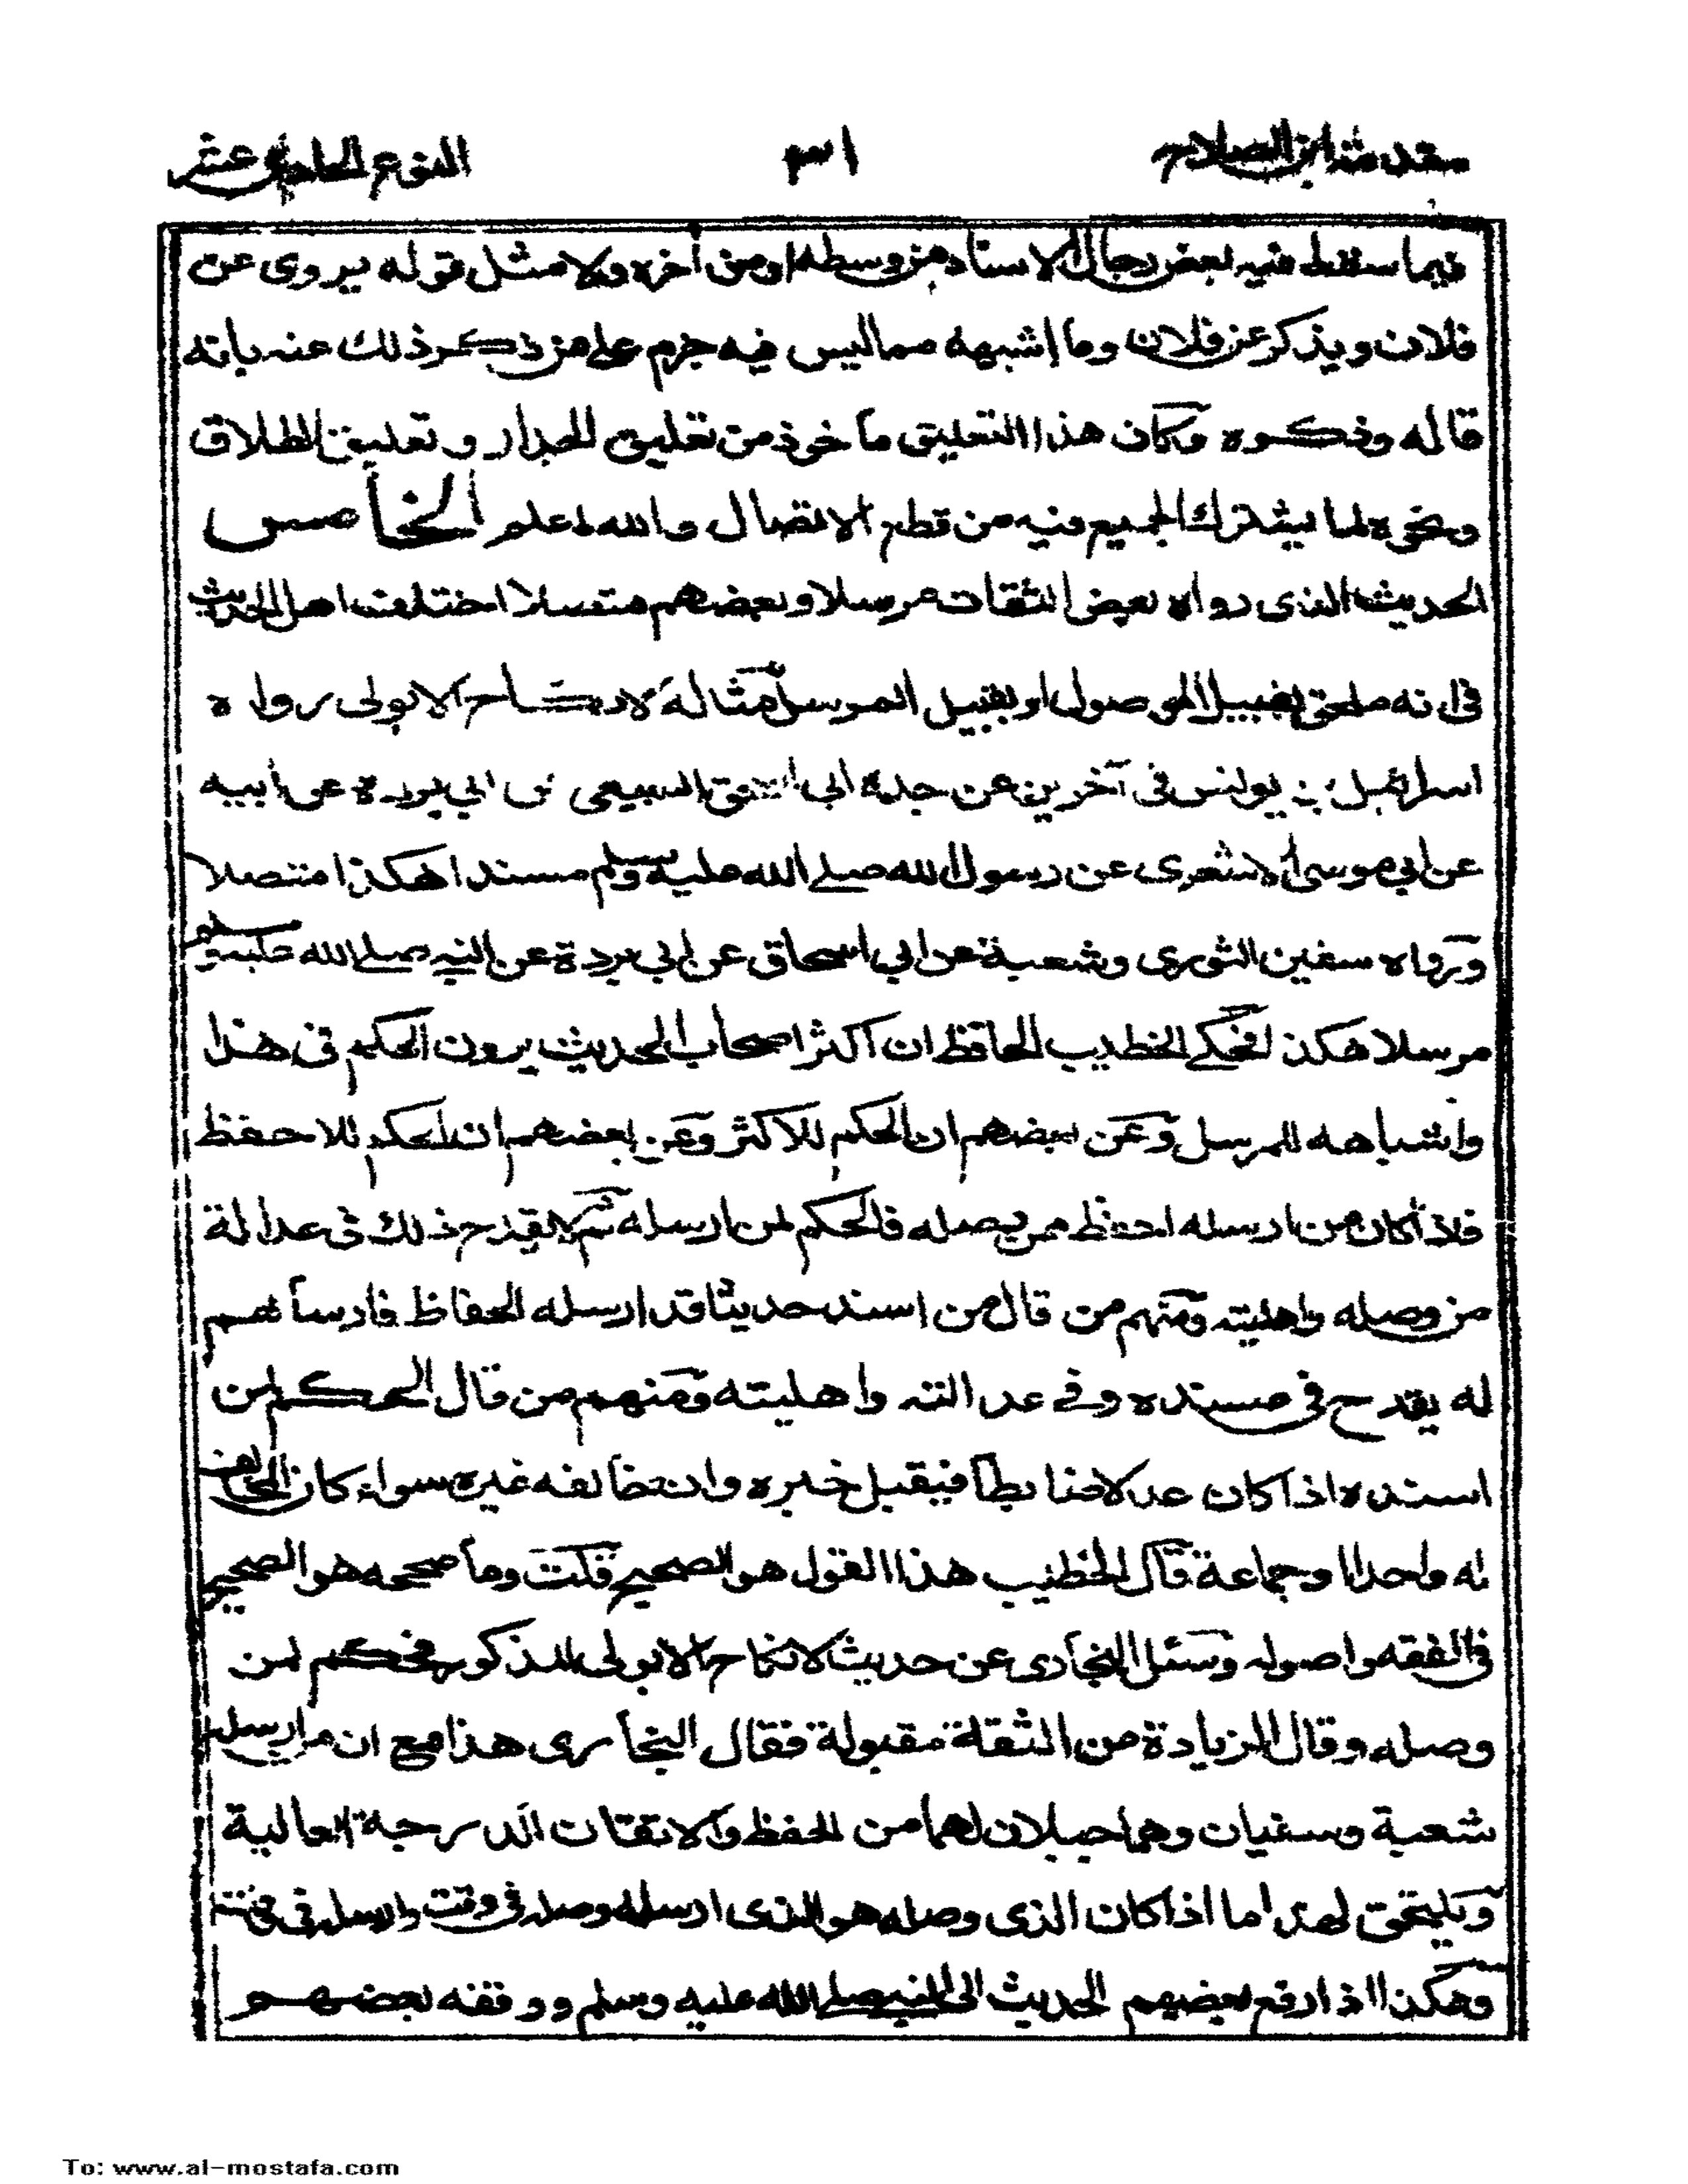 مقدمة ابن الصلاح
٣١
النوع الحادي عشر
فيما سقط فيه بعض رجال الاسناد من وسطه او من آخره ولا مثل قوله يروى عن
فلان ويذكر عن فلان وما اشبهه مما ليس فيه جزم على من ذكر ذلك عنه بانه
قاله وذكره وكان هذا التعليق ماخوذ من تعليق الجدار وتعليق الطلاق
ونحوه لما يشترك الجميع فيه من قطع الاتصال والله اعلم الخامس
الحديث الذى رواه بعض الثقات مرسلا وبعضهم متصلا اختلف اهل الحديث
فى انه ملحق بقبيل الموصول او بقبيل المرسل مثاله لا نكاح الا بولى رواه
اسرائيل بن يونس فى آخرين عن جده ابى اسحق السبيعى عن ابي بردة عن ابيه
عن ابي موسى الاشعرى عن رسول الله صلى الله عليه وسلم مسندا هكذا متصلا
ورواه سفين الثورى وشعبة عن ابي اسحاق عن ابي بردة عن النبي صلى الله عليه وسلم
مرسلا هكذا فحكى الخطيب الحافظ ان اكثر اصحاب الحديث يرون الحكم فى هذا
واشباهه للمرسل وعن بعضهم ان الحكم للاكثر وعن بعضهم ان الحكم للاحفظ
فاذا كان من ارسله احفظ ممن وصله فالحكم لمن ارسله ثم لا يقدح ذلك فى عدالة
من وصله واهليته ومنهم من قال من اسند حديثا قد ارسله الحفاظ فارسالهم
له يقدح فى مسنده وفي عدالته واهليته ومنهم من قال الحكم لمن
اسنده اذا كان عدلا ضابطا فيقبل خبره وان خالفه غيره سواء كان المخالف
له واحدا او جماعة قال الخطيب هذا القول هو الصحيح قلت وما صححه هو الصحيح
فى الفقه واصوله وسئل البخارى عن حديث لا نكاح الا بولى المذكور فحكم لمن
وصله وقال الزيادة من الثقة مقبولة فقال البخارى هذا مع ان من ارسله
شعبة وسفيان وهما جبلان لهما من الحفظ والاتقان الدرجة العالية
ويلتحق بهذا ما اذا كان الذى وصله هو الذى ارسله وصله فى وقت وارسله فى وقت
وهكذا اذا رفع بعضهم الحديث الى النبي صلى الله عليه وسلم ووقفه بعضهم
To: www.al-mostafa.com